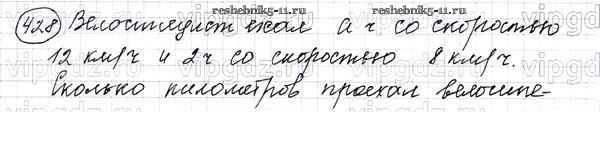 reshebnik5-11.ru reshebnik5-11.ru
428 Велосипедист ехал а ч со скоростью
12 км/ч и 2ч со скоростью 8 км/ч.
Сколько километров проехал велосипе-